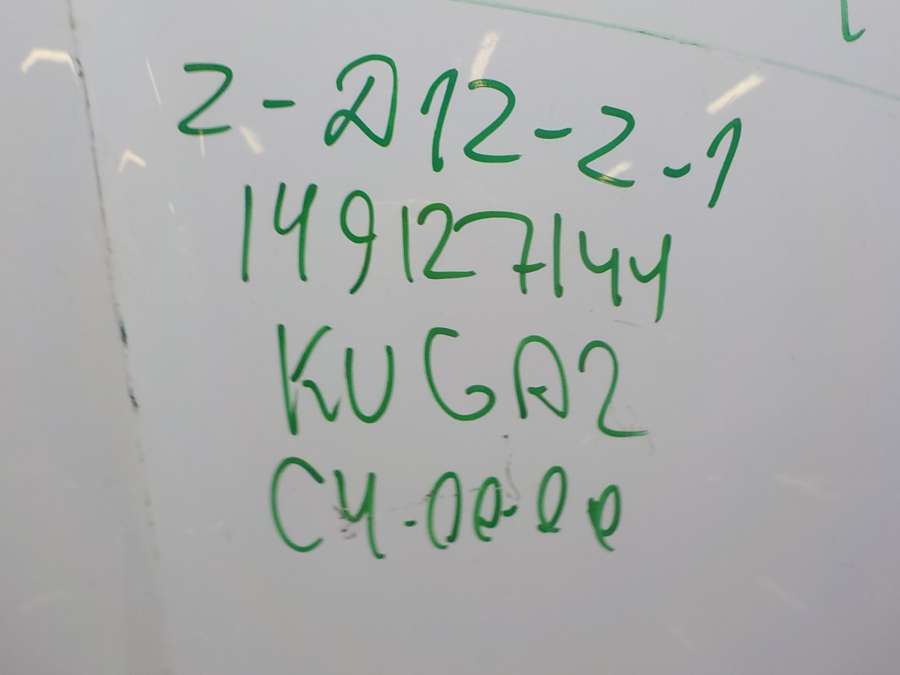 2-D12-2-1
149127144
KUGA2
C4-00-00